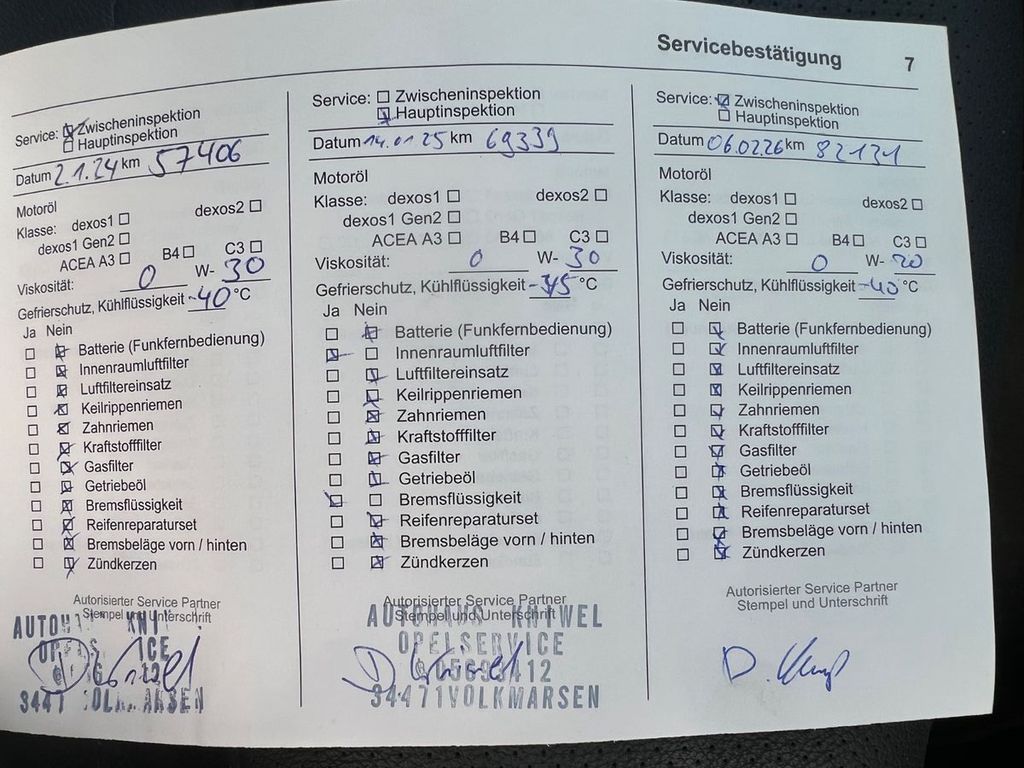 Servicebestätigung 7
Service: Zwischeninspektion
Hauptinspektion
Datum 2.1.24 km 57406
Motoröl
Klasse: dexos1 dexos2
dexos1 Gen2
ACEA A3 B4 C3
Viskosität: 0 W- 30
Gefrierschutz, Kühlflüssigkeit -40 °C
Ja Nein
Batterie (Funkfernbedienung)
Innenraumluftfilter
Luftfiltereinsatz
Keilrippenriemen
Zahnriemen
Kraftstofffilter
Gasfilter
Getriebeöl
Bremsflüssigkeit
Reifenreparaturset
Bremsbeläge vorn / hinten
Zündkerzen
Autorisierter Service Partner
Stempel und Unterschrift
34471 VOLKMARSEN
Service: Zwischeninspektion
Hauptinspektion
Datum 14.01.25 km 69339
Motoröl
Klasse: dexos1 dexos2
dexos1 Gen2
ACEA A3 B4 C3
Viskosität: 0 W- 30
Gefrierschutz, Kühlflüssigkeit °C
Ja Nein
Batterie (Funkfernbedienung)
Innenraumluftfilter
Luftfiltereinsatz
Keilrippenriemen
Zahnriemen
Kraftstofffilter
Gasfilter
Getriebeöl
Bremsflüssigkeit
Reifenreparaturset
Bremsbeläge vorn / hinten
Zündkerzen
Autorisierter Service Partner
Stempel und Unterschrift
AUTOHAUS KNIWEL
OPELSERVICE
34471VOLKMARSEN
Service: Zwischeninspektion
Hauptinspektion
Datum 06.02.26 km 82131
Motoröl
Klasse: dexos1 dexos2
dexos1 Gen2
ACEA A3 B4 C3
Viskosität: 0 W- 20
Gefrierschutz, Kühlflüssigkeit -40 °C
Ja Nein
Batterie (Funkfernbedienung)
Innenraumluftfilter
Luftfiltereinsatz
Keilrippenriemen
Zahnriemen
Kraftstofffilter
Gasfilter
Getriebeöl
Bremsflüssigkeit
Reifenreparaturset
Bremsbeläge vorn / hinten
Zündkerzen
Autorisierter Service Partner
Stempel und Unterschrift